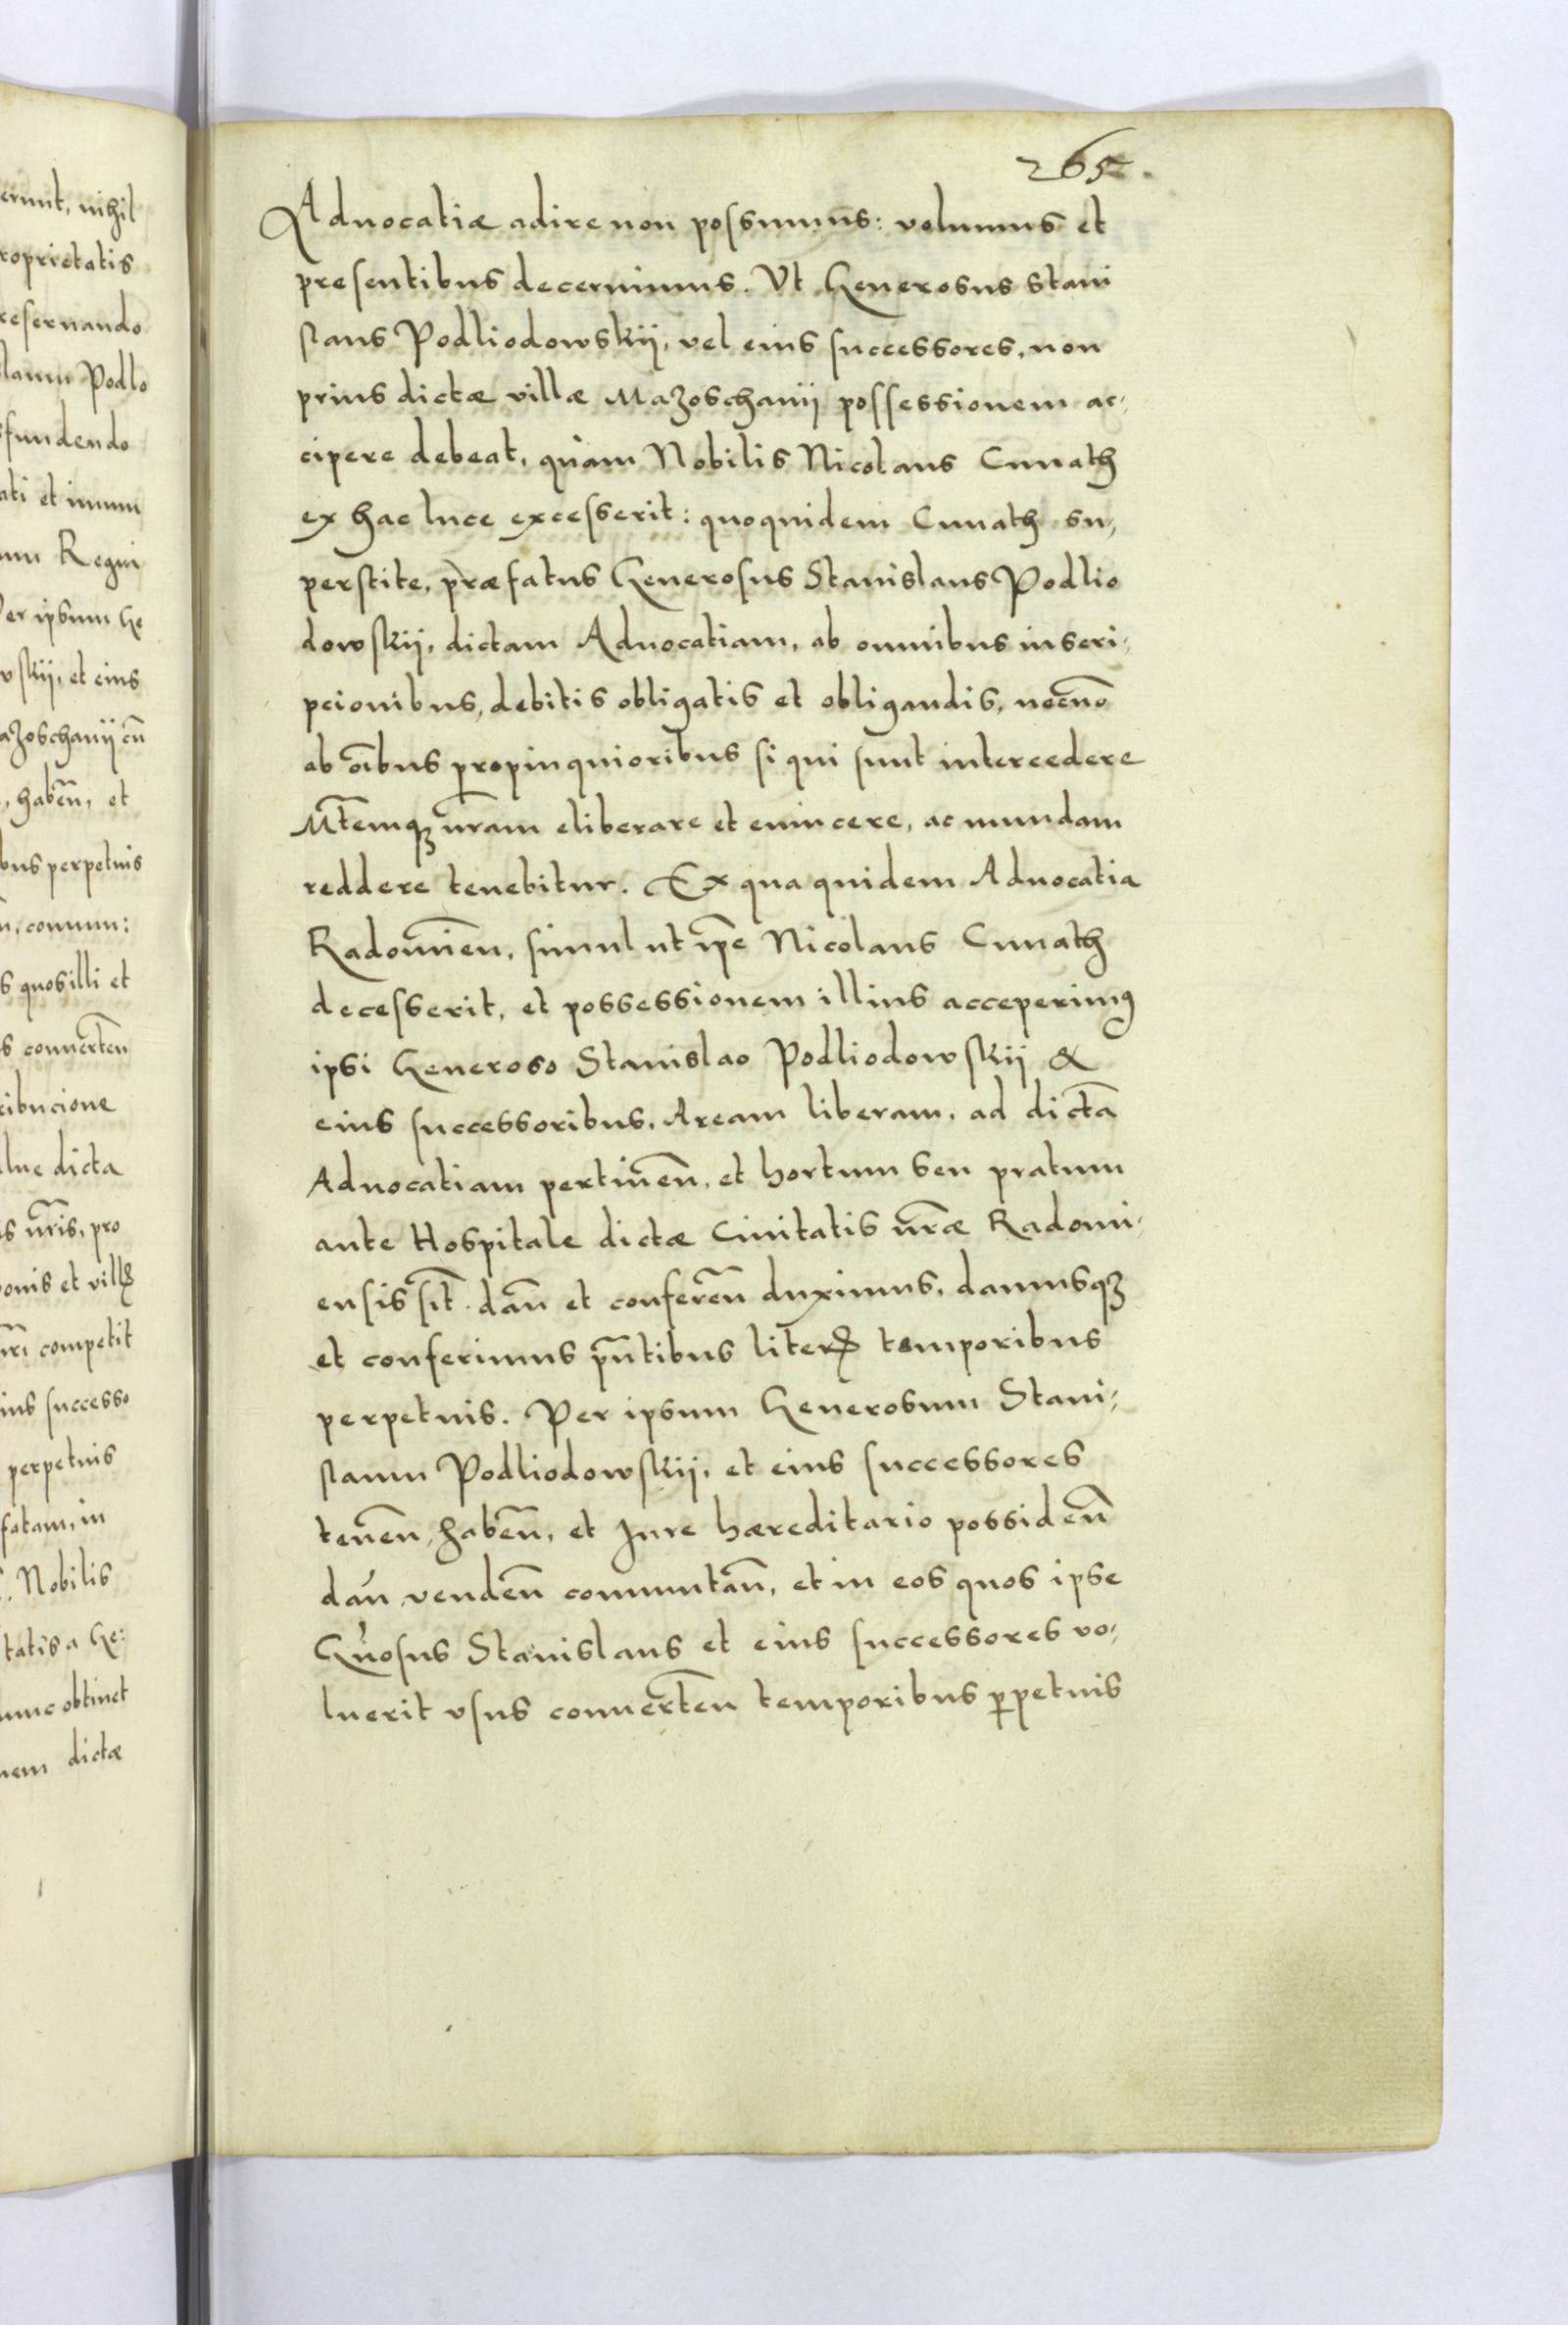 erunt, nihil
roprietatis
reseruando
laum Podlo
sfundendo
ati et imum
um Regni
Per ipsum Ge
wskij, et eius
azoschanij cū
, habeñ, et
bus perpetuis
ñ, comun:
s quos illi et
s conuerteñ
ribucione
lue dicta
is ñris, pro
onis et vill
ñri competit
ius successo
perpetuis
fatam, in
. Nobilis
tatis a Ge:
nunc obtinet
nem dictæ
265.
Aduocatiæ adire non possumus: volumus et
presentibus decernimus. Vt Generosus Stani
slaus Podliodowskij, vel eius successores, non
prius dictæ villæ Mazoschanij possessionem ac,
cipere debeat, quam Nobilis Nicolaus Cunath
ex hac luce excesserit: quoquidem Cunath su,
perstite, præfatus Generosus Stanislaus Podlio
dowskij, dictam Aduocatiam, ab omnibus inscri,
pcionibus, debitis obligatis et obligandis, necnō
ab oībus propinquioribus si qui sunt intercedere
Mtemq ñram eliberare et euincere, ac mundam
reddere tenebitur. Ex qua quidem Aduocatia
Radomieñ, simul ut ip̄e Nicolaus Cunath
decesserit, et possessionem illius acceperimꝰ
ipsi Generoso Stanislao Podliodowskij &
eius successoribus, Aream liberam, ad dictā
Aduocatiam pertineñ, et hortum seu pratum
ante Hospitale dictæ Ciuitatis ñræ Radomi,
ensis sit̄. dañ et confereñ duximus, damusqꝫ
et conferimus pñtibus liter temporibus
perpetuis. Per ipsum Generosum Stani,
slaum Podliodowskij, et eius successores
teneñ, habeñ, et Jure hæreditario possideñ
dañ vendeñ commutañ, et in eos quos ipse
Gñosus Stanislaus et eius successores vo,
luerit vsus conuerteñ temporibus ꝑpetuis